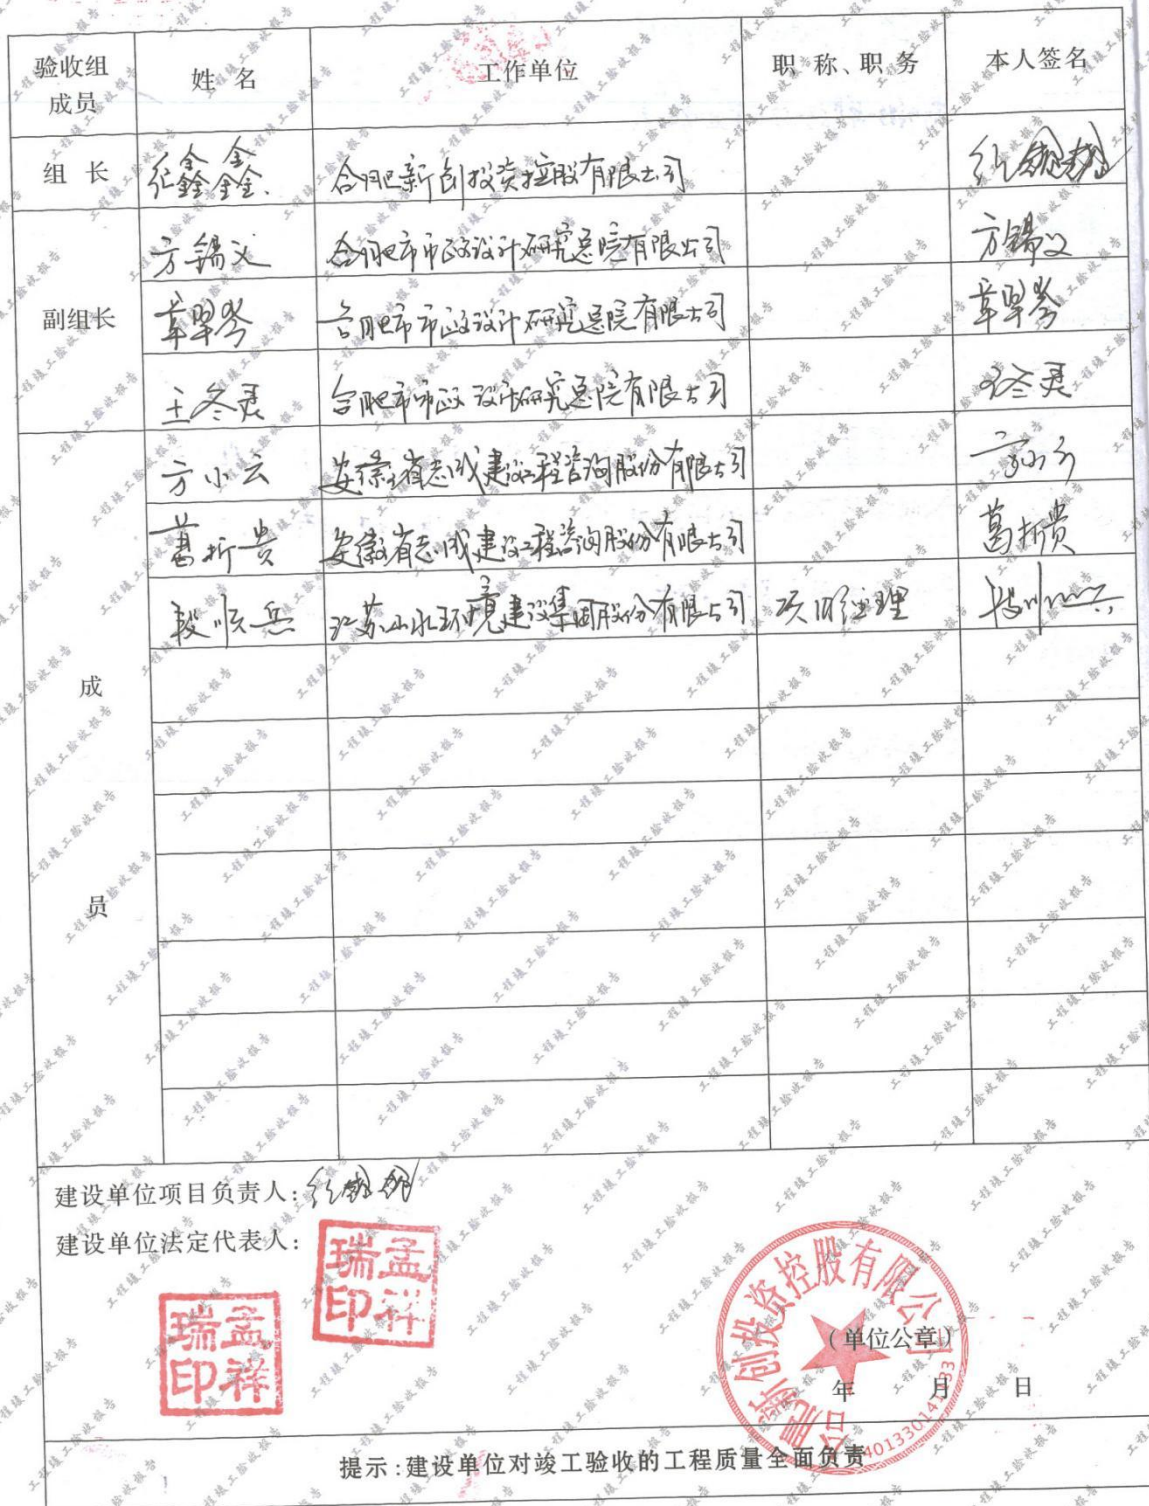 验收组成员 姓 名 工作单位 职 称、职 务 本人签名
组 长 纪鑫鑫 合肥新创投资控股有限公司
副组长 方锡义 合肥市市政设计研究总院有限公司 方锡义
章翠岑 合肥市市政设计研究总院有限公司 章翠岑
王冬灵 合肥市市政设计研究总院有限公司 王冬灵
成员 方小云 安徽省志成建设工程咨询股份有限公司 方小云
葛折贵 安徽省志成建设工程咨询股份有限公司 葛折贵
段顺兵 江苏山水环境建设集团股份有限公司 项目经理 段顺兵
建设单位项目负责人:
建设单位法定代表人:
孟祥瑞印
孟祥瑞印
合肥新创投资控股有限公司
(单位公章)
年 月 日
提示:建设单位对竣工验收的工程质量全面负责
工程竣工验收报告